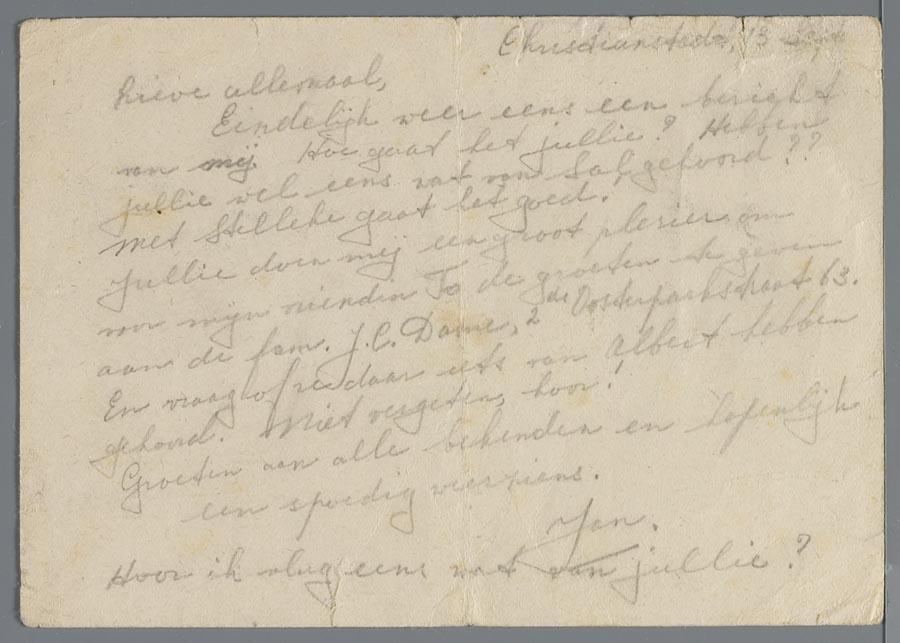 Christianstadt, 13 Sept
Lieve allemaal,
Eindelijk weer eens een bericht
van mij. Hoe gaat het jullie? Hebben
jullie wel eens wat van Sal gehoord??
Met Stelleke gaat het goed.
Jullie doen mij een groot plesier om
voor mijn vriendin To de groeten te geven
aan de fam. J.C. Dame, 2de Oosterparkstraat 63.
En vraag of ze daar iets van Albert hebben
gehoord. Niet vergeten, hoor!
Groeten aan alle bekenden en hopenlijk
een spoedig weerziens.
Jan.
Hoor ik vlug eens wat van jullie?